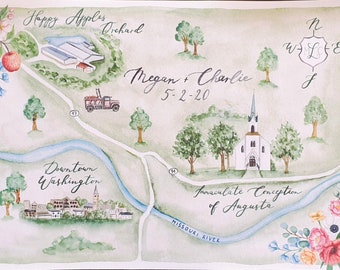 Happy Apples
Orchard
N
W L E
S
Megan + Charlie
5-2-20
47
94
Downtown
Washington
Immaculate Conception
of Augusta
MISSOURI RIVER